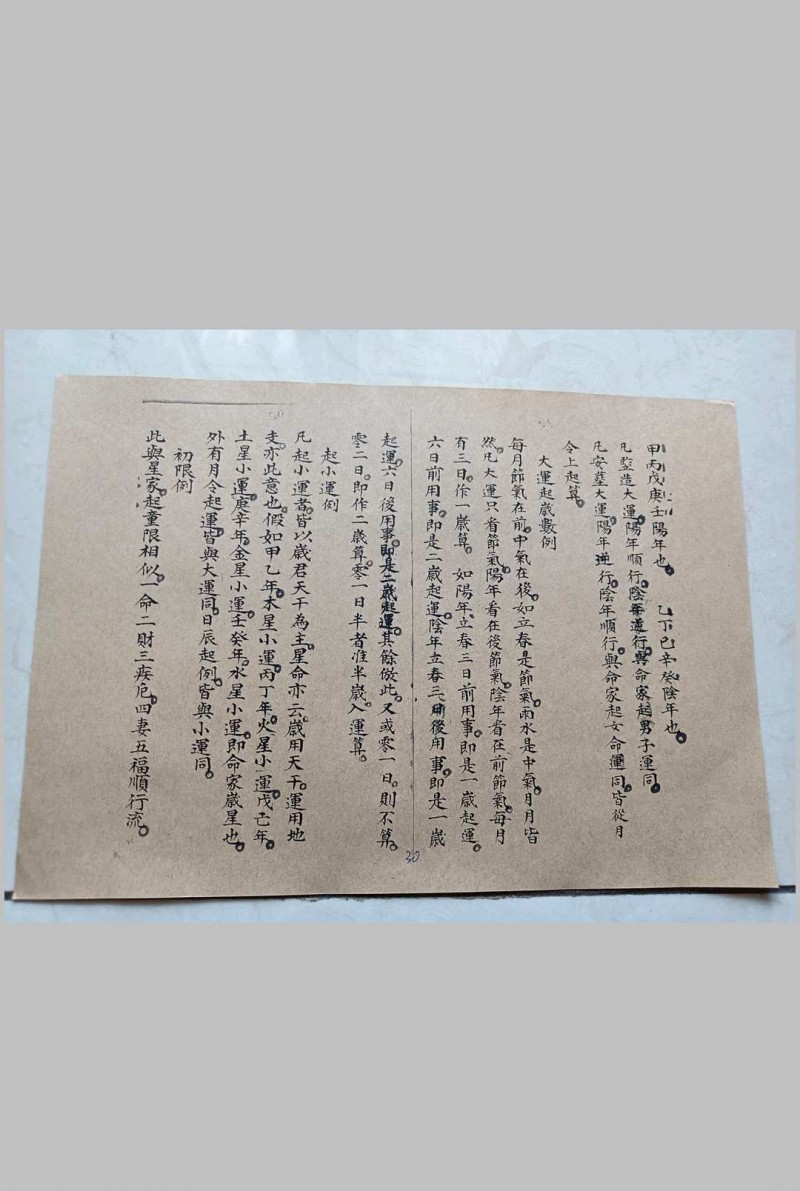 甲丙戊庚壬陽年也。 乙丁己辛癸陰年也。
凡竪造大運。陽年順行。陰年逆行。與命家起男子運同。
凡安墓大運。陽年逆行。陰年順行。與命家起女命運同。皆從月
令上起算。
大運起歲數例
每月節氣在前。中氣在後。如立春是節氣。雨水是中氣。月月皆
然。凡大運只看節氣。陽年看在後節氣。陰年看在前節氣。每月
有三日。作一歲算。如陽年立春三日前用事。即是一歲起運。
六日前用事。即是二歲起運。陰年立春三日後用事。即是一歲
起運。六日後用事。即是二歲起運。其餘倣此。又或零一日。則不算。
零二日。即作二歲算。零一日半者准半歲。入運算。
起小運例
凡起小運者。皆以歲君天干為主。星命亦云。歲用天干。運用地
支。亦此意也。假如甲乙年。木星小運。丙丁年。火星小運。戊己年。
土星小運。庚辛年。金星小運。壬癸年。水星小運。即命家歲星也。
外有月令起運。皆與大運同。日辰起例。皆與小運同。
初限例
此與星家。起童限相似。一命二財三疾厄。四妻五福順行流。
30